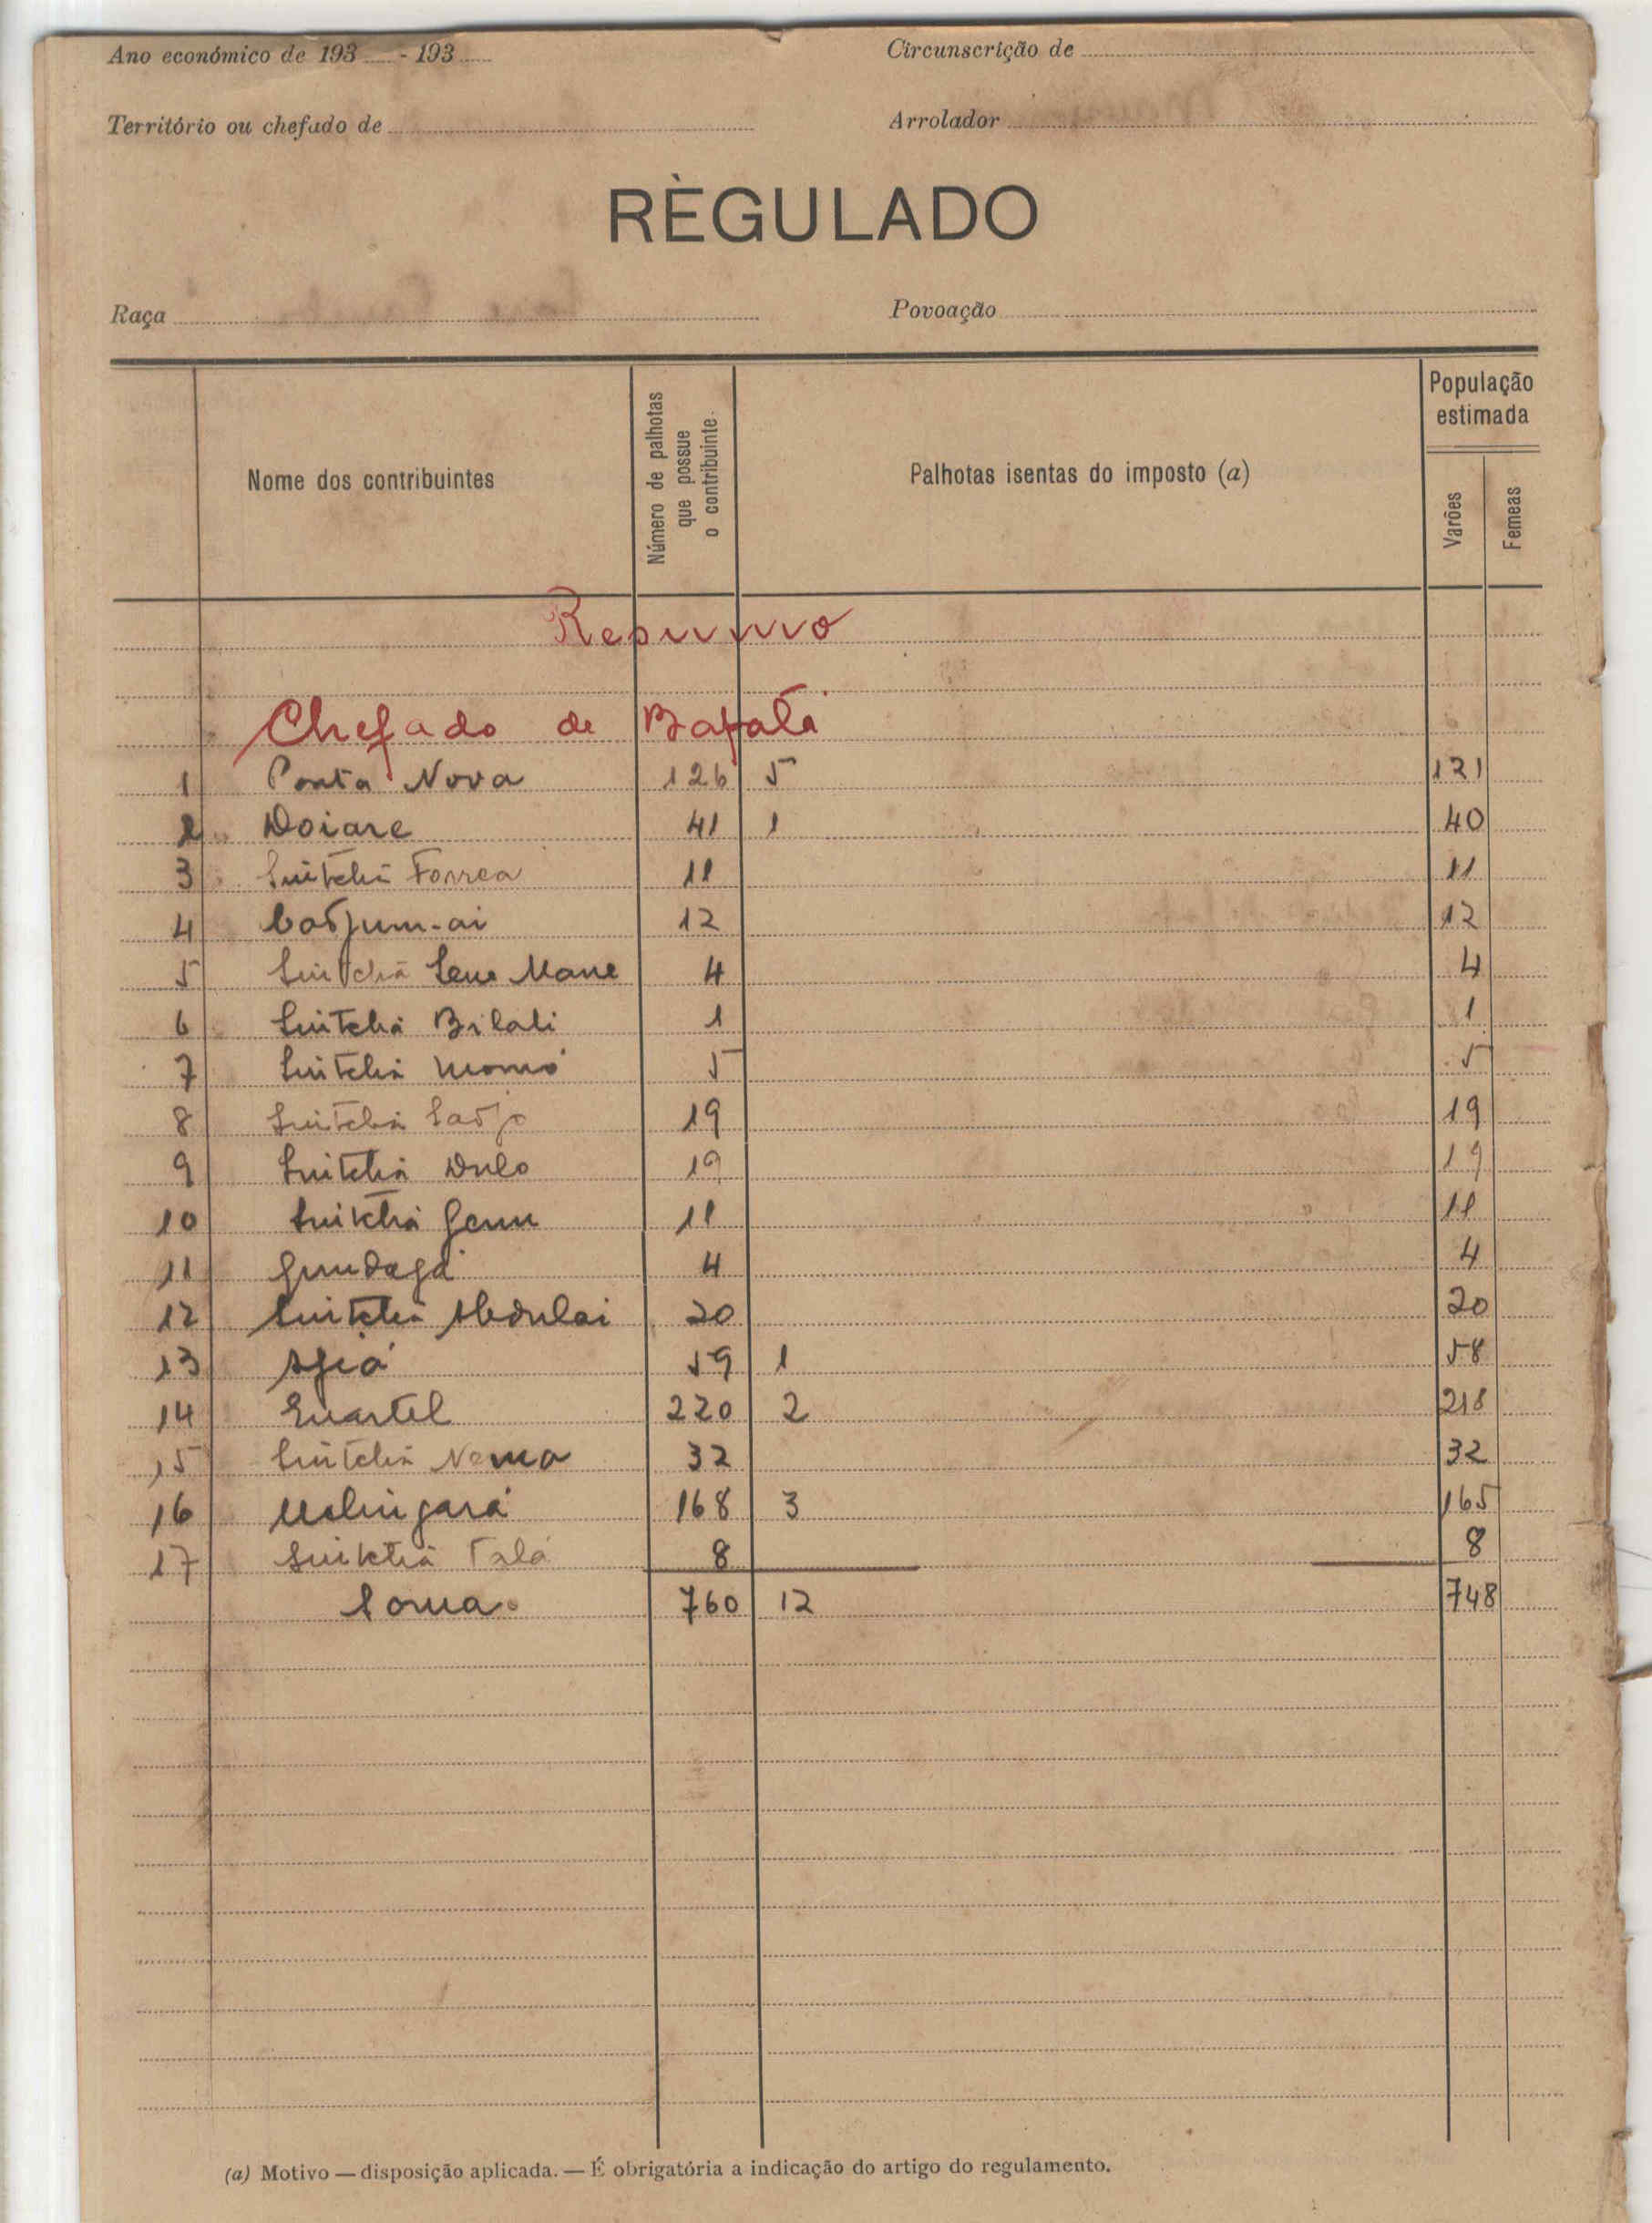 Ano económico de 193 - 193
Circunscrição de
Território ou chefado de
Arrolador
RÈGULADO
Raça
Povoação
Nome dos contribuintes
Número de palhotas que possue o contribuinte.
Palhotas isentas do imposto (a)
População estimada
Varões
Femeas
Resumo
Chefado de Bafatá
1 Ponta Nova 126 5 121
2 Doiare 41 1 40
3 Sintchã Forrea 11 11
4 12 12
5 Sintchã Mane 4 4
6 Sintchã Bilali 1 1
7 Sintchã Momó 5 5
8 Sintchã 19 19
9 Sintchã Dulo 19 19
10 Sintchã 11 11
11 4 4
12 Sintchã Abdulai 20 20
13 Afiá 59 1 58
14 Quartel 220 2 218
15 Sintchã Nema 32 32
16 168 3 165
17 Sintchã Talá 8 8
Soma 760 12 748
(a) Motivo — disposição aplicada. — É obrigatória a indicação do artigo do regulamento.